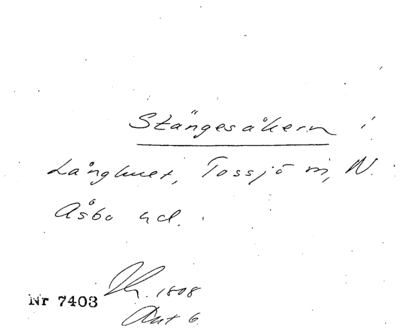 Stängesåkern i
Långhuet, Tossjö sn, N.
Åsbo hd.
Nr 7403
1808
Akt 6